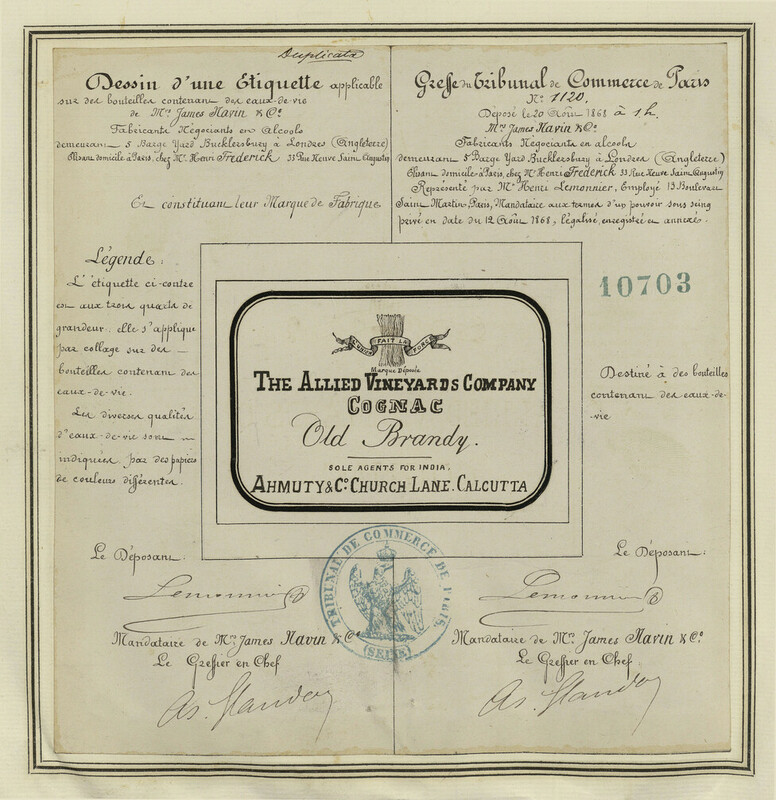 Duplicata
Dessin d'une Etiquette applicable
sur des bouteilles contenant des eaux-de-vie
de Mrs James Navin & Co.
Fabricants Négociants en Alcools
demeurant 5 Barge Yard Bucklersbury à Londres (Angleterre)
Elisant domicile à Paris, chez Mr Henri Frederick 33 Rue Neuve Saint Augustin
Et constituant leur Marque de Fabrique
Légende:
L'étiquette ci-contre
est aux trois quarts de
grandeur. elle s'applique
par collage sur des
bouteilles contenant des
eaux-de-vie.
Les diverses qualités
d'eaux-de-vie sont
indiquées par des papiers
de couleurs différentes.
Greffe du Tribunal de Commerce de Paris
No 1120.
Déposé le 20 Août 1868 à 1h.
Mrs James Navin & Co.
Fabricants Négociants en alcools
demeurant 5 Barge Yard Bucklersbury à Londres (Angleterre)
Elisant domicile à Paris, chez Mr Henri Frederick 33 Rue Neuve Saint Augustin
Représenté par Mr Henri Lemonnier, Employé 13 Boulevard
Saint Martin, Paris, Mandataire aux termes d'un pouvoir sous seing
privé en date du 12 Août 1868, légalisé, enregistré et annexé.
10703
Destiné à des bouteilles
contenant des eaux-de-
vie
L'UNION FAIT LA FORCE
Marque Déposée
THE ALLIED VINEYARDS COMPANY
COGNAC
Old Brandy.
SOLE AGENTS FOR INDIA,
AHMUTY & Co. CHURCH LANE. CALCUTTA
TRIBUNAL DE COMMERCE DE PARIS.
(SEINE)
Le Déposant:
Lemonnier
Mandataire de Mrs James Navin & Co.
Le Greffier en Chef
Le Déposant:
Lemonnier
Mandataire de Mrs James Navin & Co.
Le Greffier en Chef